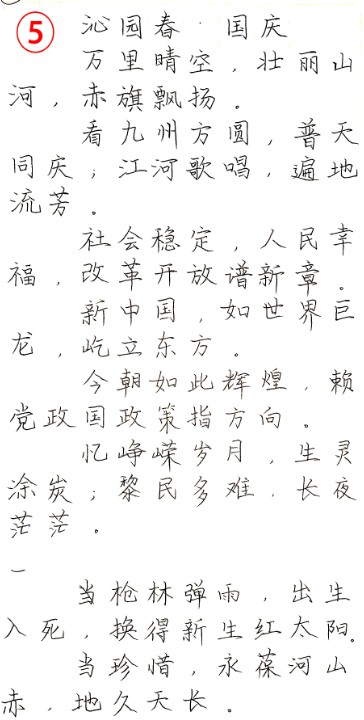 ⑤ 沁园春·国庆
万里晴空，壮丽山
河，赤旗飘扬。
看九州方圆，普天
同庆；江河歌唱，遍地
流芳。
社会稳定，人民幸
福，改革开放谱新章。
新中国，如世界巨
龙，屹立东方。
今朝如此辉煌，赖
党政国政策指方向。
忆峥嵘岁月，生灵
涂炭；黎民多难，长夜
茫茫。
一
当枪林弹雨，出生
入死，换得新生红太阳。
当珍惜，永葆河山
赤，地久天长。